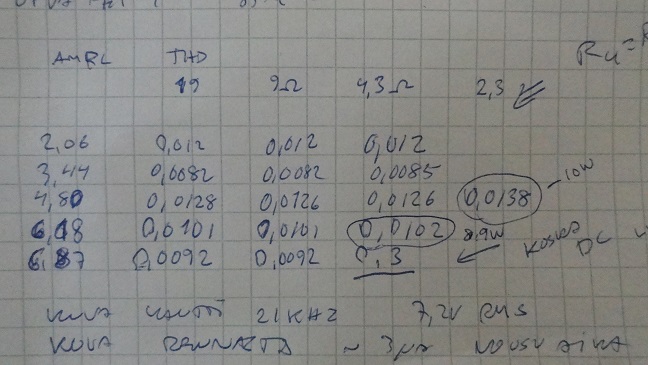 AMPL THD Ru =
19 9Ω 4,3 Ω 2,3
2,06 0,012 0,012 0,012
3,44 0,0082 0,0082 0,0085
4,80 0,0128 0,0126 0,0126 0,0138 10W
6,18 0,0101 0,0101 0,0102 8,9W
6,87 0,0092 0,0092 0,3 KOSKA DC
KUVA KANTTI 21 KHZ 7,2V RMS
KUVA ~ 3μs NOUSU AIKA